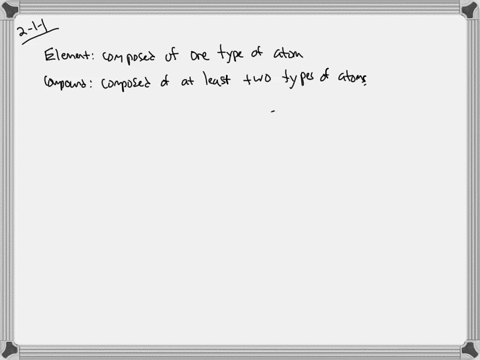 2-1-1
Element: composed of one type of atom
Compound: composed of at least two types of atoms